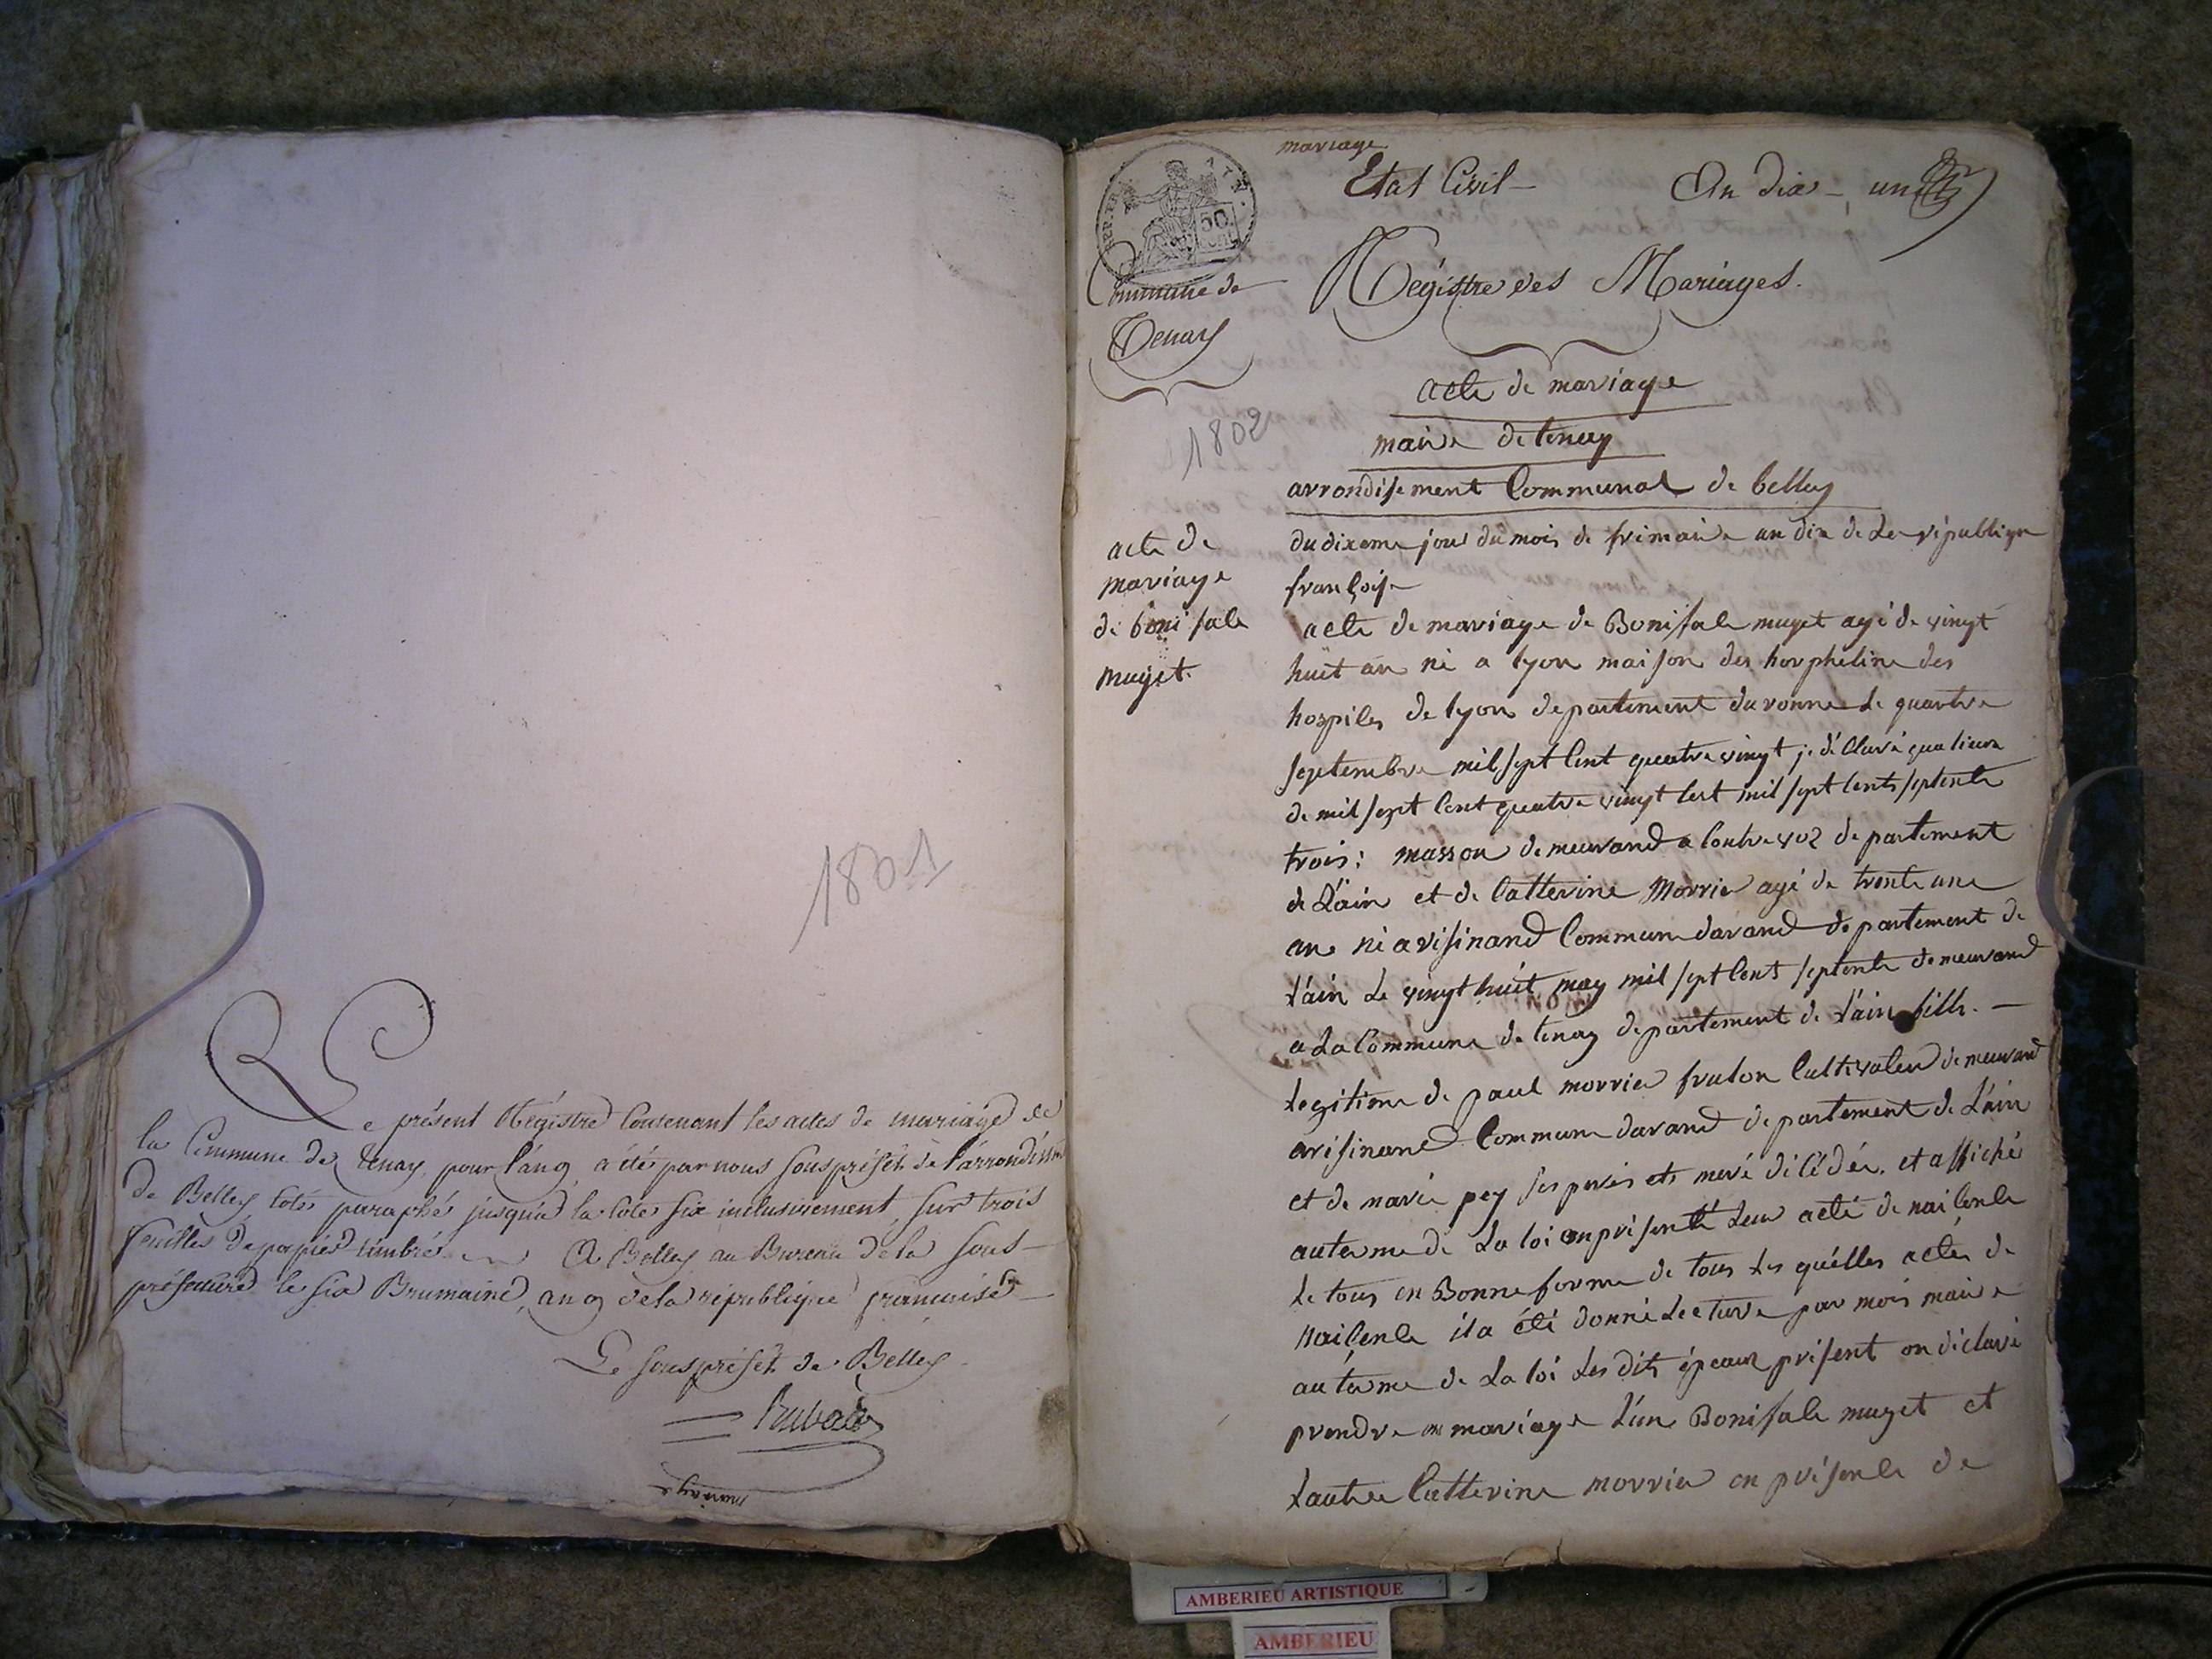 1801
Le présent Régistre Contenant les actes de mariage de
la Commune de Tenay pour l'an 9 a été par nous sous préfet de l'arrondissmt
de Belley coté paraphé jusqu'à la cote six inclusivement sur trois
feuilles de papier timbré A Belley au Bureau de la sous-
préfecture le six Brumaire, an 9 de la république francaise
Le sous préfet de Belley
mariage
mariage
Etat Civil - An dix - un
50
Commune de
Tenay
Régistre des Mariages.
1802
acte de mariage
maire de tenay
arrondisement Communal de belley
acte de
mariage
de bonifale
muget.
du dixeme jour du mois de frimaire an dix de La république
françoise
acte de mariage de Bonifale muget agé de vingt
huit an né a lyon maison des horpheline des
hospiles de lyon departement du ronne Le quartre
septembre mil sept cent quatre vingt je déclare qua lieure
de mil sept cent quatre vingt cest mil sept cents septente
trois: masson demeurand a Contrevoz departement
de L'ain et de Catterine Morrier agé de trente une
ans né a visinand Commune darand departement de
L'ain Le vingt huit may mil sept cent septente demeurand
a La Commune de tenay departement de L'ain fille. -
Legitime de paul morrier fralon Cultivateur demeurand
avisinand Commune darand departement de L'ain
et de marie pey ses peres et meré décédée. et affiché
au terme de La loi on présenté Leur acte de naicence
Le tous en Bonne forme de tous Les quélles actes de
Naicence il a été donné Lecture par mois maire
au terme de La loi Les dits époux présent on déclaré
prendre en mariage L'un Bonifale muget et
Lautre Catterine morrier en présence de
AMBERIEU ARTISTIQUE
AMBERIEU